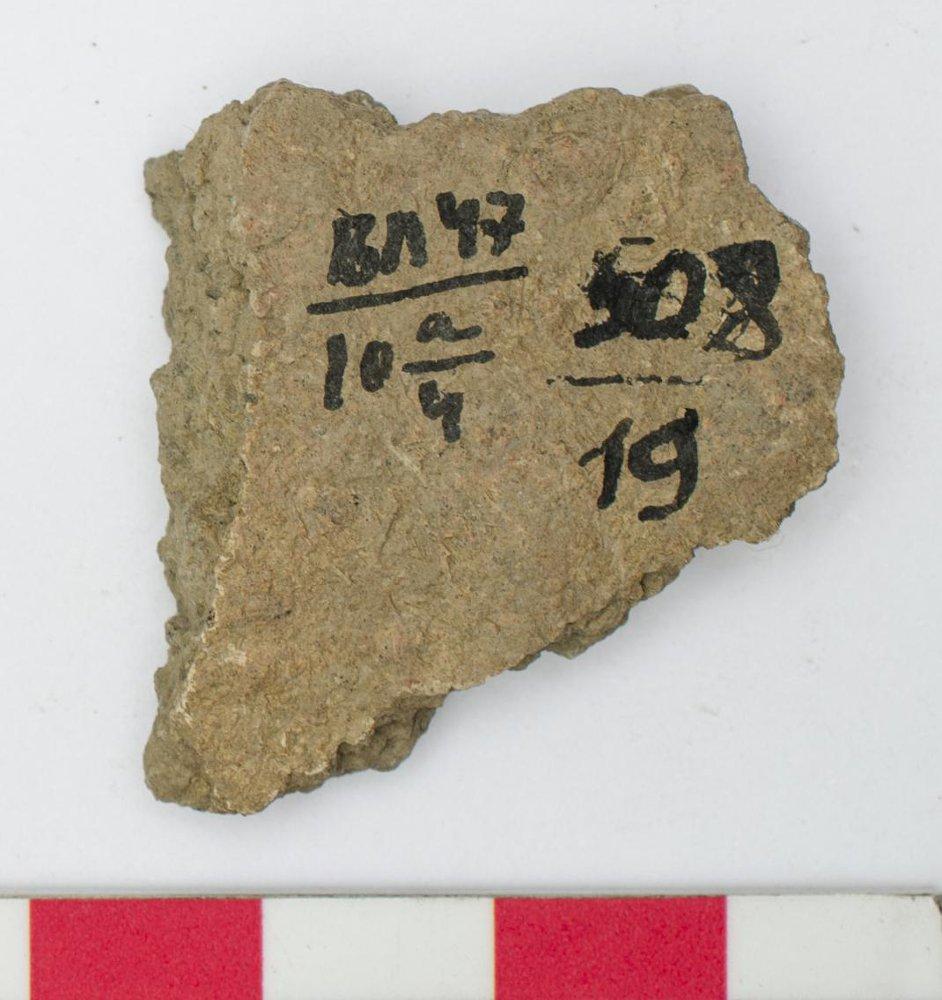 ВЛ 47
10 а
4
508
19